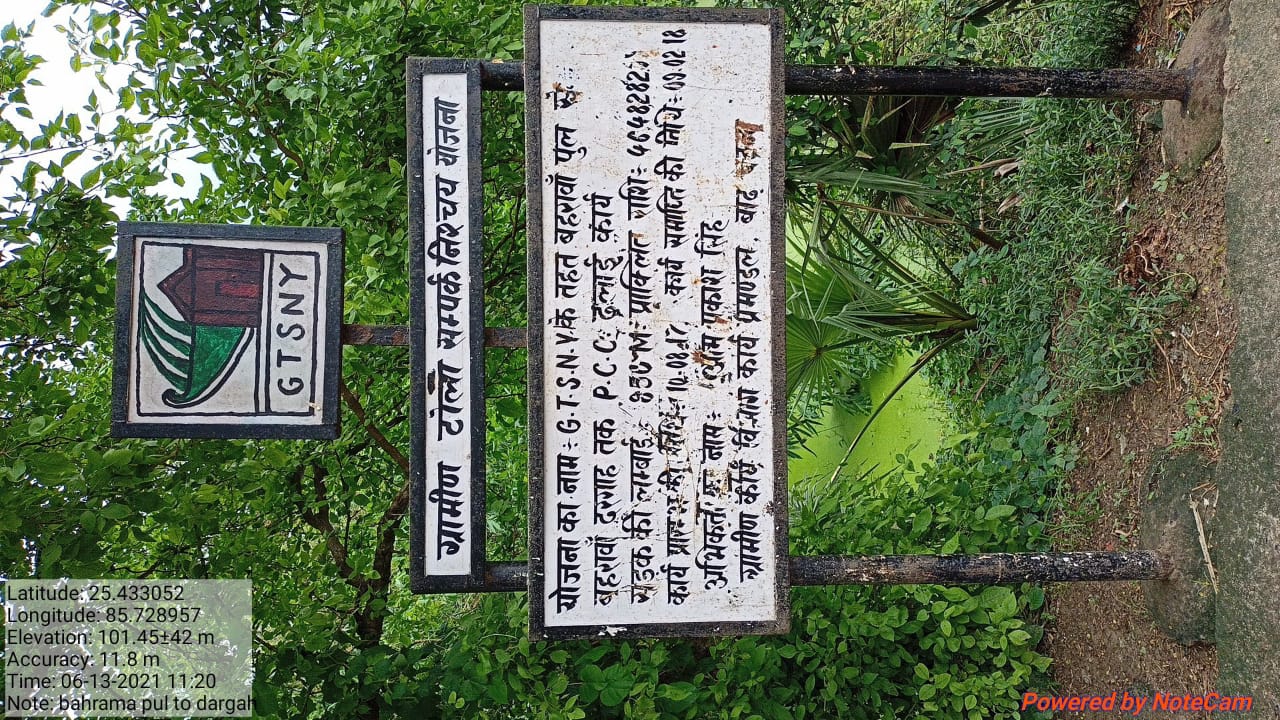 GTSNY
ग्रामीण टोला सम्पर्क निश्चय योजना
योजना का नाम:- G.T.S.N.Y. के तहत बहरावाँ पुल से
बहरावाँ दरगाह तक P.C.C. ढलाई कार्य
सड़क की लम्बाई:- 850 M प्राक्कलित राशि:
कार्य प्रारम्भ की तिथि:- 10.08.17 कार्य समाप्ति की तिथि:- 09.02.18
अभिकर्ता का नाम:- प्रकाश सिंह
ग्रामीण कार्य विभाग कार्य प्रमण्डल, बाढ़
Latitude: 25.433052
Longitude: 85.728957
Elevation: 101.45±42 m
Accuracy: 11.8 m
Time: 06-13-2021 11:20
Note: bahrama pul to dargah
Powered by NoteCam